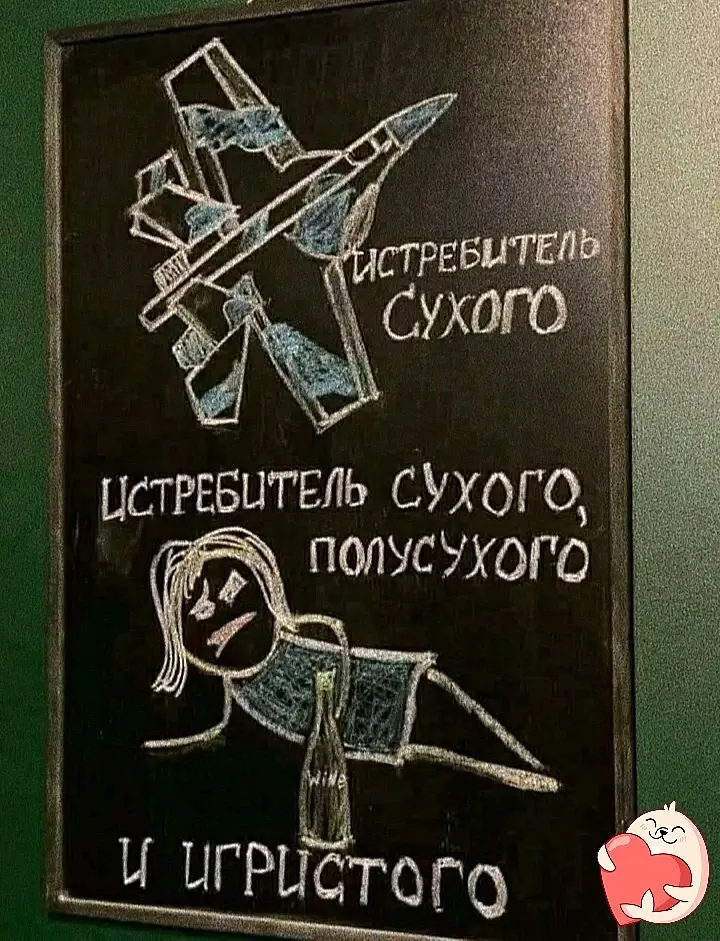 ИСТРЕБИТЕЛЬ
СУХОГО
ИСТРЕБИТЕЛЬ СУХОГО,
ПОЛУСУХОГО
WINE
И ИГРИСТОГО